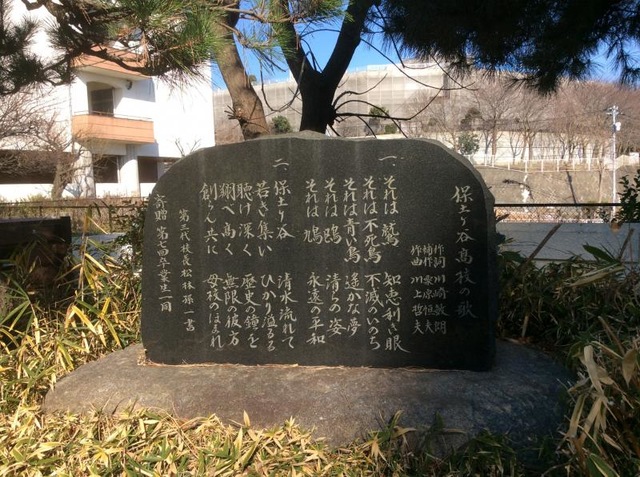 保土ケ谷高校の歌
作詞 川崎敏朗
補作 栗原恒夫
作曲 川上哲夫
一、
それは 鷲 知恵利き眼
それは 不死鳥 不滅のいのち
それは 青い鳥 遥かな夢
それは 鴎 清らの姿
それは 鳩 永遠の平和
二、
保土ケ谷 清水流れて
若き集い ひかり溢るる
聴け深く 歴史の鐘を
翔べ高く 無限の彼方
創らん共に 母校のほまれ
第三代校長 松林孫一書
寄贈 第七四卒業生一同